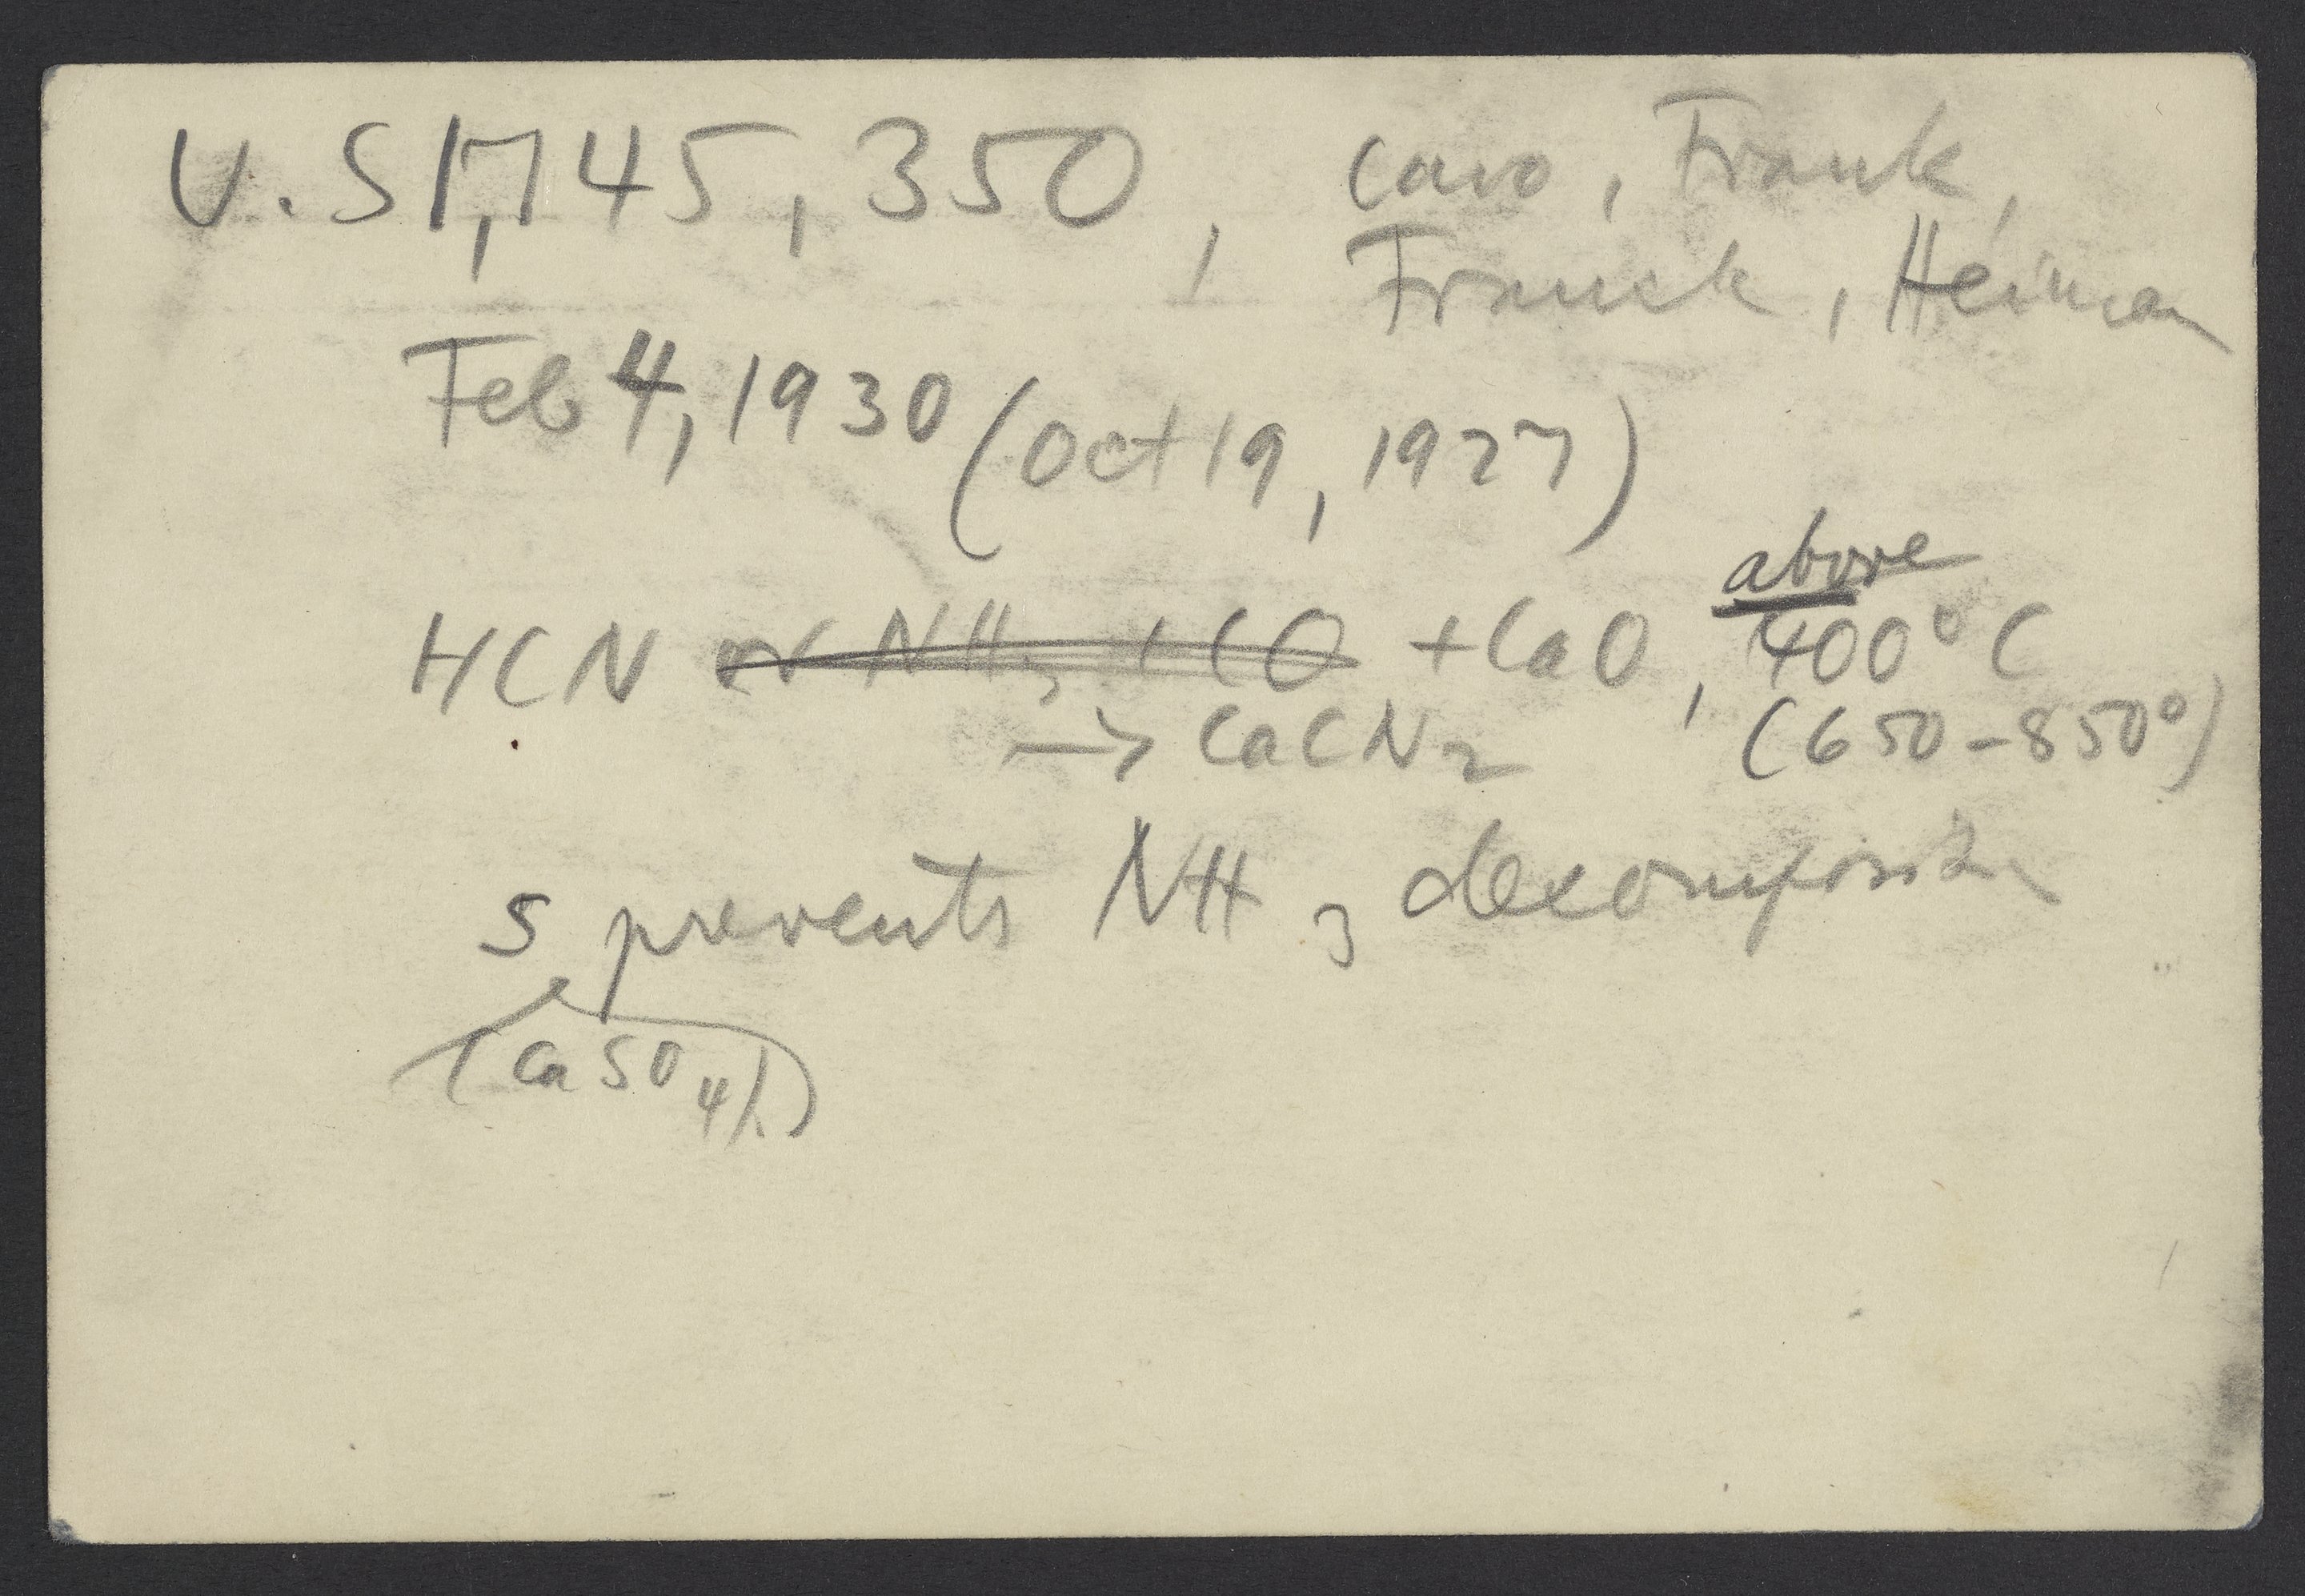 U.S 1,745,350, Caro, Frank,
Franck, Heiman
Feb 4, 1930 (Oct 19, 1927)
above
HCN or NH3 + CO + CaO, 400° C
→ CaCN2 (650-850°)
S prevents NH3 decomposition
(CaSO4)